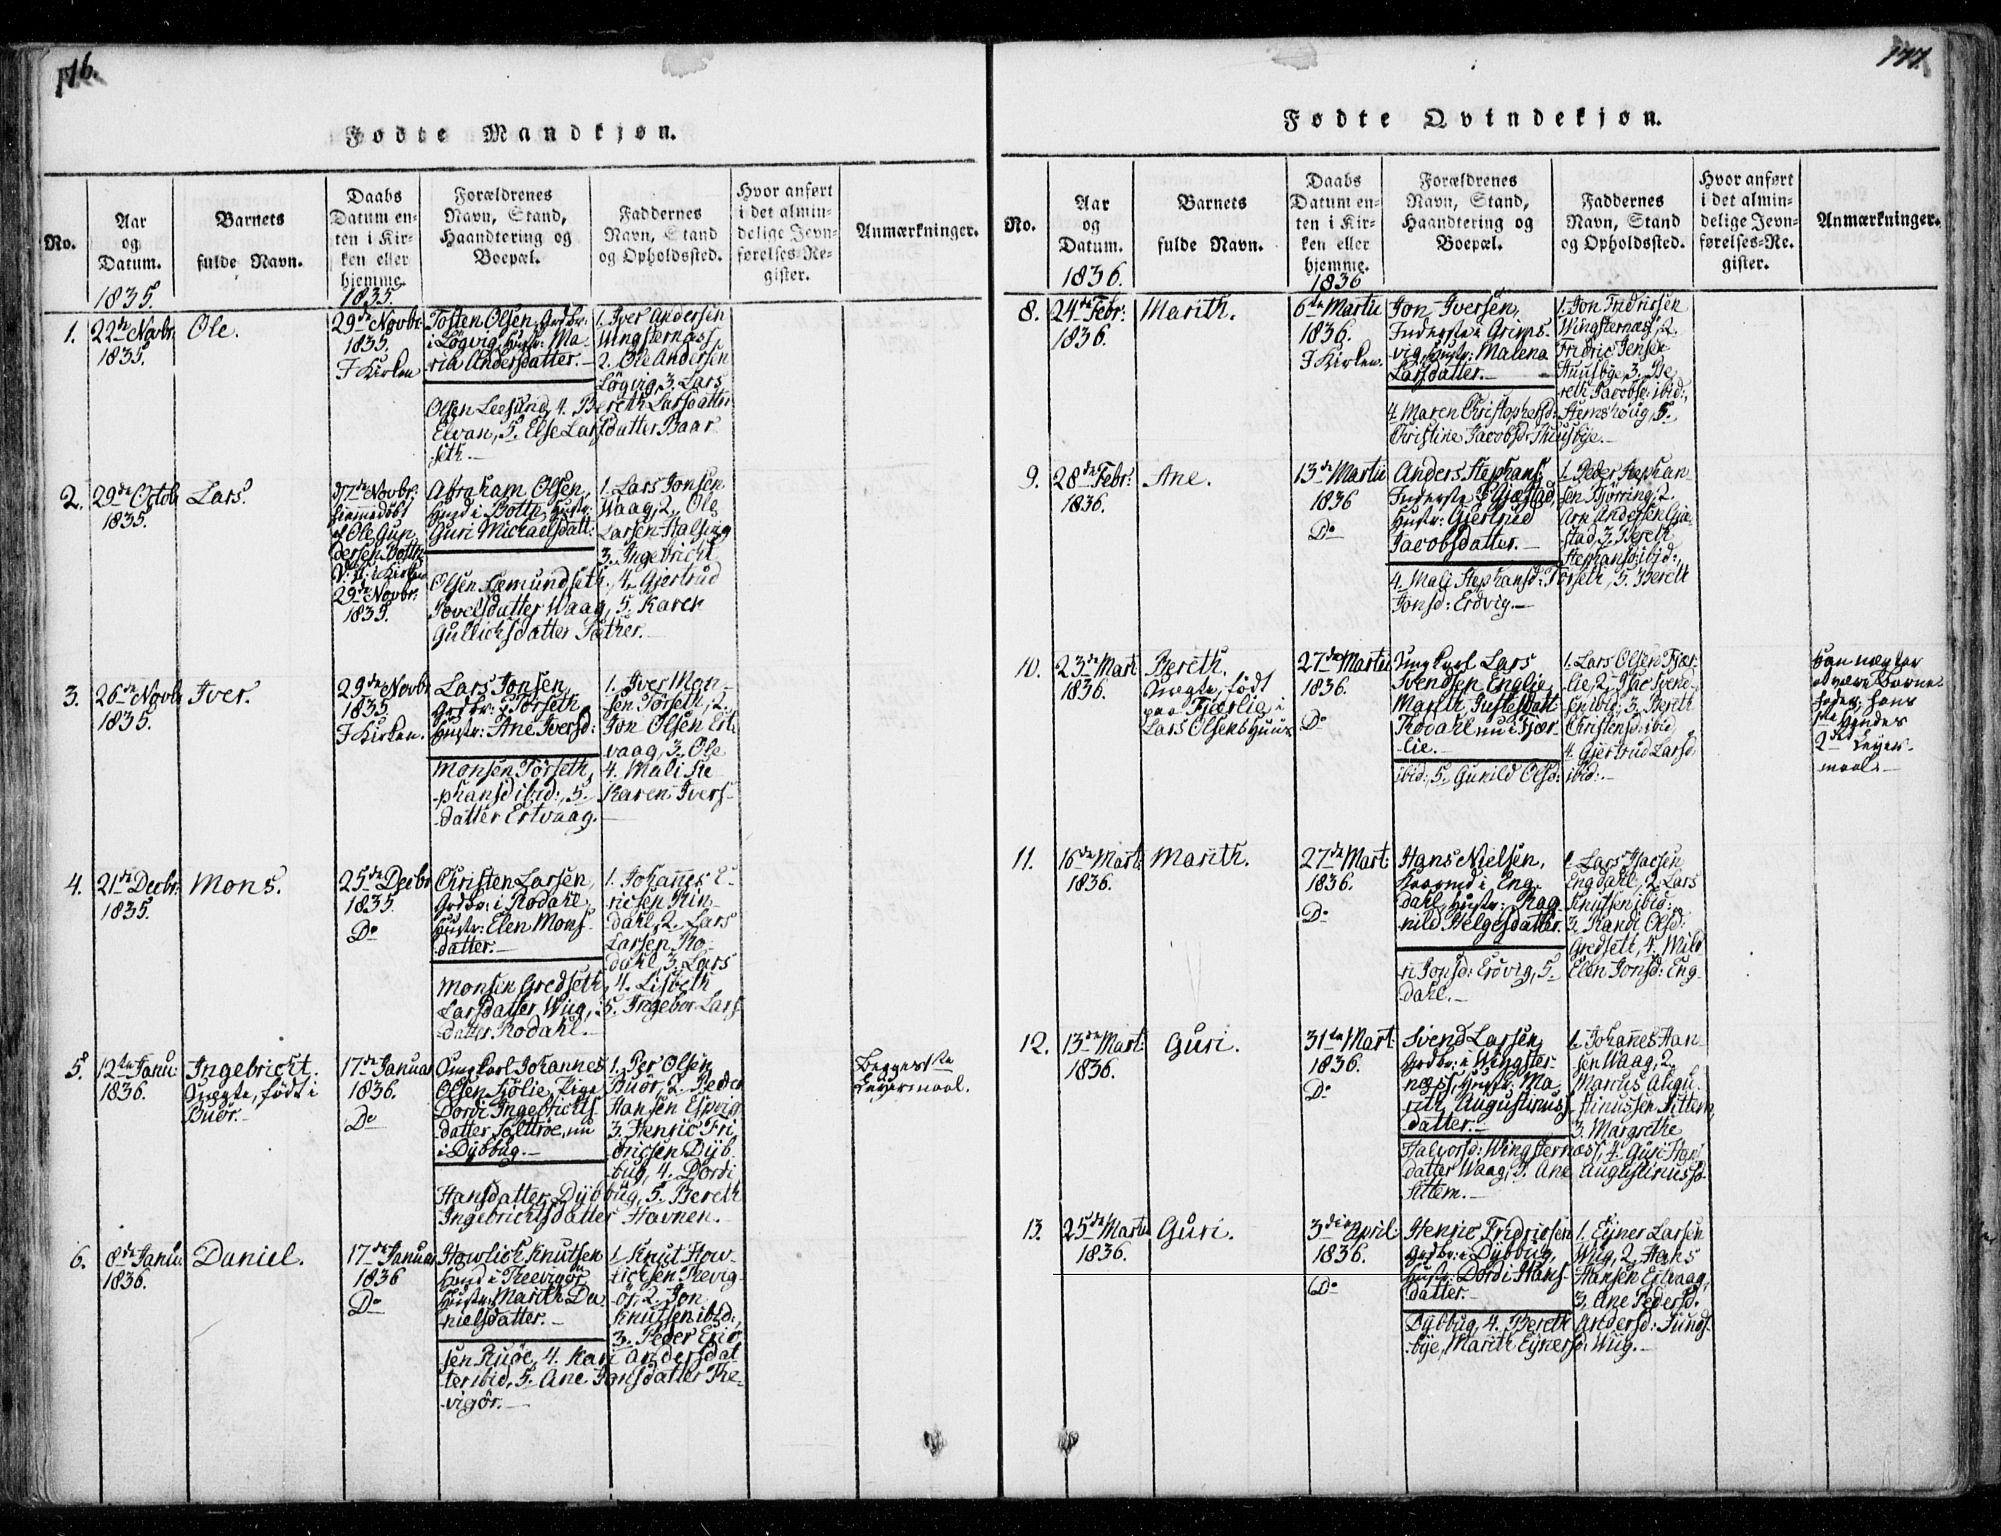 176.
Fødte Mandkjøn.
No.
Aar
og
Datum.
1835.
Barnets
fulde Navn.
Daabs
Datum en-
ten i Kir-
ken eller
hjemme.
1835.
Forældrenes
Navn, Stand,
Haandtering og
Boepæl.
Faddernes
Navn, Stand
og Opholdssted.
Hvor anført
i det almin-
delige Jevn-
førelses-Re-
gister.
Anmærkninger.
1.
22de Novbr:
1835.
Ole.
29de Novbr:
1835.
I Kirken
Tosten Olsen, Grdbr:
i Løgvig, Hustr: Ma-
ria Andersdatter.
1. Iver Andersen
Wingsternæss,
2. Ole Andersen
Løgvig, 3. Lars
Olsen Leesund, 4. Bereth Larsdatter
Elvan, 5. Else Larsdatter Baar
seth.
2.
29de Octob
1835.
Lars.
Novbr:
hjemmedøbt
af Ole Gun
dersen Botten
i Kirken
29de Novbr:
1835.
Abraham Olsen,
Huusmd i Botten, Hustr:
Guri Michaelsdatt:
1. Lars Jonsen
Waag, 2. Ole
Larsen Halseng
3. Ingebricht
Olsen Semundseth, 4. Gjertrud
Povelsdatter Waag, 5. Karen
Gullichsdatter Sæther.
3.
26de Novb
1835.
Iver.
29de Novbr
1835
I Kirken.
Lars Jonsen,
Grdbr: i Torseth,
Hustr: Ane Iversd:
1. Iver Mon-
sen Torseth, 2.
Jon Olsen Ert
vaag, 3. Ole
Monsen Torseth, 4. Mali Ste
phansd ibid:, 5. Karen Ivers-
datter Ertvaag.
4.
21de Decbr:
1835.
Mons.
25de Decbr
1835.
Do
Christen Larsen,
Grdbr: i Rodahl,
Hustr: Elen Mons-
datter.
1. Johannes E-
ricsen Rin-
dahl, 2. Lars
Larsen Ro-
dahl, 3. Lars
Monsen Gredseth, 4. Lisbeth
Larsdatter Wiig, 5. Ingebor Lars
datter Rodahl.
5.
12te Janu:
1836.
Ingebricht.
Uægte, født i
Buør.
17de Januar
1836.
Do
Ungkarl Johannes
Olsen Fjølie, Pige
Dordi Ingebrichts-
datter, nu
i Dybbug.
1. Per Olsen
Buør, 2. Peder
Hansen Espvig
3. Henric Fri
dricsen Dyb-
bug, 4. Dordi
Hansdatter Dybbug, 5. Bereth
Ingebrichtsdatter Havnen.
Begges 1te
Leiermaal.
6.
8de Janu.
1836.
Daniel.
17de Januar
1836
Do
Howlich Knutsen
Huusmd i Trevigør,
Hustr: Marith Da
nielsdatter.
1. Knut How-
lichsen Trevig-
ør, 2. Jon
Knutsen ibid:,
3. Peder Eric
sen Ruøe, 4. Kari Andersdat
ter ibid, 5. Ane Jonsdatter Tre-
vigør.
177.
Fødte Qvindekjøn.
No.
Aar
og
Datum.
1836.
Barnets
fulde Navn.
Daabs
Datum en-
ten i Kir-
ken eller
hjemme.
1836
Forældrenes
Navn, Stand,
Haandtering og
Boepæl.
Faddernes
Navn, Stand
og Opholdssted.
Hvor anført
i det almin-
delige Jevn-
førelses-Re-
gister.
Anmærkninger.
8.
24de Febr:
1836.
Marith.
6te Martii
1836.
I Kirken.
Jon Iversen,
Inderste i Grims-
vig, Hustr: Malena
Larsdatter.
1. Jon Fridricsen
Wingsternæs, 2.
Fridric Jensen
Huusbye, 3. Be
reth Jacobsd: ibid:,
4. Maren Christophersd: Stemshoug, 5.
Christine Jacobsd: Huusbye.
9.
28de Febr:
1836.
Ane.
13de Martii
1836
Do
Anders Stephans:
Inderste i Gjæstad,
Hustr: Gjertrud
Jacobsdatter.
1. Peder Stephan-
sen Bjørring, 2.
Arn Andersen Gjæ-
stad, 3. Bereth
Stephansd: ibid:,
4. Mali Stephansd: Torseth, 5. Bereth
Jonsd: Erdvig.
10.
23de Mart:
1836.
Bereth.
Uægte, født
paa Fjærlie, i
Lars Olsens Huus
27de Martii
1836.
Do
Ungkarl Lars
Svendsen Englie,
Marith Gustafsdatt
Rodahl, nu i Fjær-
lie.
1. Lars Olsen Fjær-
lie, 2. Isac Svend-
sen ibid:, 3. Bereth
Christensd: ibid,
4. Gjertrud Larsd
ibid:, 5. Gunild Olsd: ibid:.
Han nægter
at være Barne-
fader; hans
1te hendes
2det Leyer-
maal.
11.
16de Mart:
1836.
Marith.
27de Mart
1836.
Do
Hans Nielsen,
Huusmd i Eng-
dahl, Hustr: Rag-
nild Helgesdatter.
1. Lars Isacsen
Engdahl, 2. Lars
Knutsen ibid:,
3. Randi Olsd:
Gredseth, 4. Mild
ri Jonsd: Erdvig, 5. Elen Jonsd: Eng-
dahl.
12.
13de Mart:
1836.
Guri.
31te Mart
1836.
Do
Svend Larsen,
Grdbr: i Wingster-
næss, Hustr: Ma
rith Augustinus-
datter.
1. Johannes Han-
sen Waag, 2.
Marcus Augu-
stinussen Sittem,
3. Margrethe
Halvorsd: Wingsternæss, 4. Guri Hans
datter Waag, 5. Ane Augustinusd:
Sittem.
13.
25de Martii
1836.
Guri.
3die April
1836.
Do
Henric Fridricsen
Grdbr: i Dybbug,
Hustr: Dordi Hans-
datter.
1. Ejner Larsen
Wiig, 2. Hans
Hansen Ertvaag,
3. Ane Pedersd.
Dybbug, 4. Bereth Andersd: Sunds-
bye, Marith Ejnersd: Wiig.